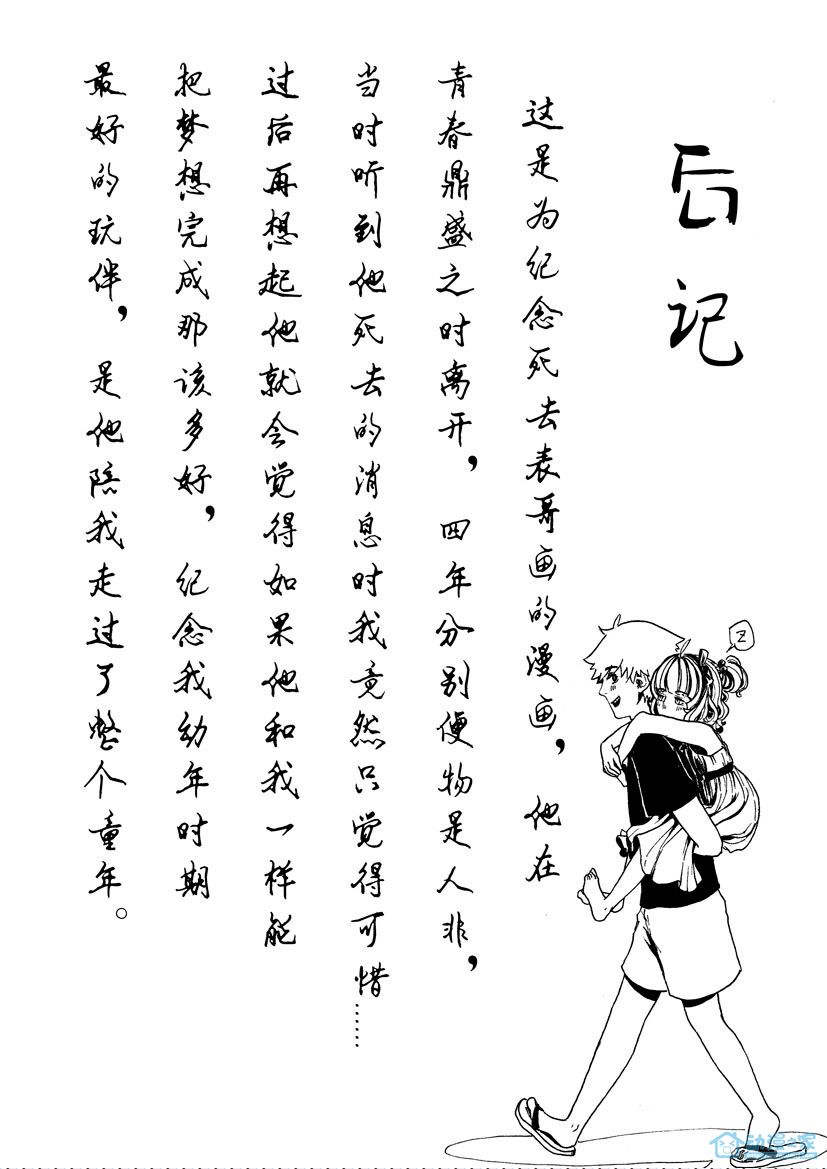 后记
这是为纪念死去表哥画的漫画，他在
青春鼎盛之时离开，四年分别便物是人非，
当时听到他死去的消息时我竟然只觉得可惜……
过后再想起他就会觉得如果他和我一样能
把梦想完成那该多好，纪念我幼年时期
最好的玩伴，是他陪我走过了整个童年。
Z
动漫之家